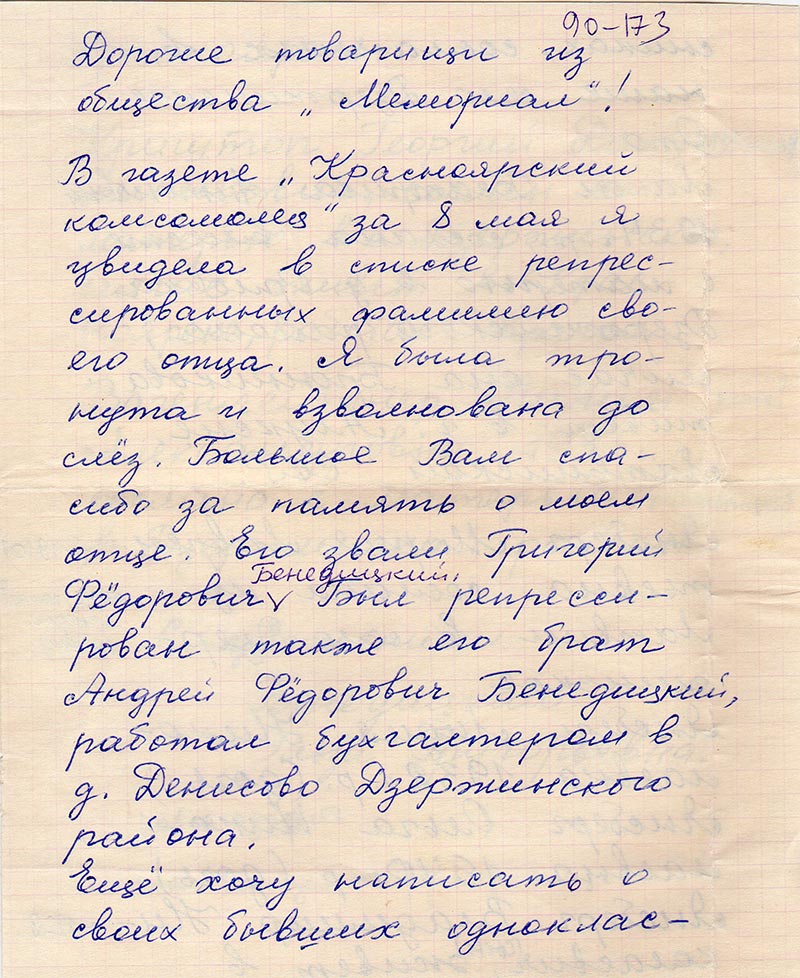 90-173
Дорогие товарищи из
общества „Мемориал“!
В газете „Красноярский
комсомолец“ за 8 мая я
увидела в списке репрес-
сированных фамилию сво-
его отца. Я была тро-
нута и взволнована до
слёз. Большое Вам спа-
сибо за память о моем
отце. Его звали Григорий
Бенедицкий.
Фёдорович Был репресси-
рован также его брат
Андрей Фёдорович Бенедицкий,
работал бухгалтером в
д. Денисово Дзержинского
района.
Ещё хочу написать о
своих бывших одноклас-